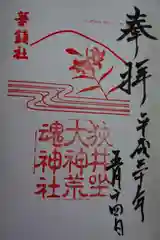 奉拝
平成二十年
五月十四日
華鎮社
狹井坐
大神荒
魂神社